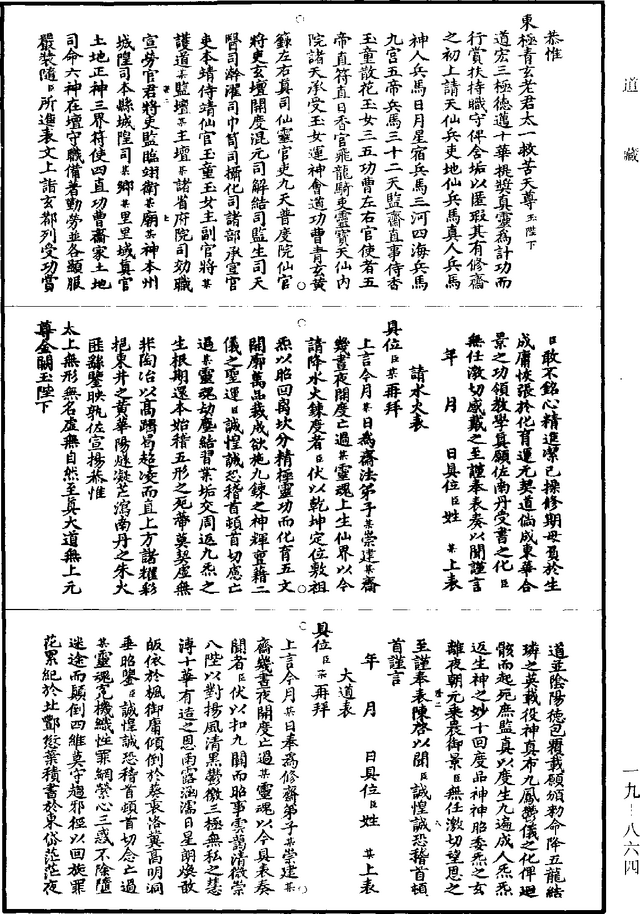 恭惟
東極青玄老君太一救苦天尊玉陛下
道宏三極德邁十華提獎真靈為計功而
行賞扶持職守俾含垢以匿瑕其有修齋
之初上請天仙兵吏地仙兵馬真人兵馬
神人兵馬日月星宿兵馬三河四海兵馬
九宮五帝兵馬三十二天監齋直事侍香
玉童散花玉女三五功曹左右官使者五
帝直符直日香官飛龍騎吏靈寶天仙內
院諸天承受玉女運神會道功曹青玄黃
籙左右真司仙靈官吏九天普度院仙官
將吏玄壇開度混元司解結司監生司天
醫司澣濯司巾笥司攝化司諸部承宣官
吏本靖侍靖仙官玉童玉女主副官將某
護道某監壇某主壇某諸省府院司効職
宣勞官君將吏監臨翊衛某廟某神本州
城隍司本縣城隍司某鄉某里里域真官
土地正神三界符使四直功曹齋家土地
司命六神在壇守職備著勤勞並各顯服
嚴裝隨臣所進表文上詣玄都列受功賞
臣敢不銘心精進潔己操修期毋負於生
成庸恢張於化育運元契道儻成東華合
景之功領教學真願佐南丹受書之化臣
無任激切感戴之至謹奉表奏以聞謹言
年 月 日具位臣姓 某上表
請水火表
具位臣某再拜
上言今月某日為齋法弟子某崇建某齋
幾晝夜開度亡過某靈魂上生仙界以今
請降水火鍊度者臣伏以乾坤定位敷祖
炁以昭回离坎分精極靈功而化育五文
開廓萬品裁成欲施九鍊之神輝亶藉二
儀之聖運臣誠惶誠恐稽首頓首切慮亡
過某靈魂劫塵結習業垢交周返九炁之
生根期還本始稽五形之死蔕莫契虛無
非陶冶以高躋曷超凌而直上方諸耀彩
挹東井之黃華陽燧凝芒瀉南丹之朱火
匪繇鑒映孰佐宣揚恭惟
太上無形無名虛無自然至真大道無上元
尊金闕玉陛下
道並陰陽德包覆載願頒勑命降五龍結
璘之英載役神真布九鳳鬱儀之化俾迴
骸而起死庶監真以度生九遍成人炁炁
返生神之妙十回度品神神昭委炁之玄
離夜朝元乘晨御景臣無任激切望恩之
至謹奉表陳啓以聞臣誠惶誠恐稽首頓
首謹言
年 月 日具位臣姓 某上表
大道表
具位臣某再拜
上言今月某日奉為修齋弟子某崇建某
齋幾晝夜開度亡過某靈魂以今具表奏
聞者臣伏以扣九關而昭事雲萬清微崇
八陛以對揚風清黑鬱徹三極無私之慧
溥十華有造之恩雨露涵濡日星朗煥敢
皈依於楓御庸傾倒於葵衷洛冀高明洞
垂昭鑒臣誠惶誠恐稽首頓首切念亡過
某靈魂克機纖性罪網縈心三惑不除隨
迷途而顛倒四維莫守趨邪徑以回旋罪
花累紀於北酆愆葉積書於東岱茫茫夜
道藏
一九-八六四